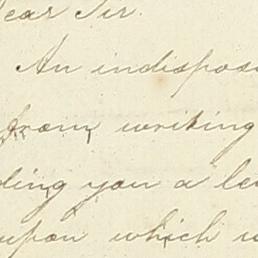 Dear Sir.
An indispos
from writing
ding you a le
upon which w